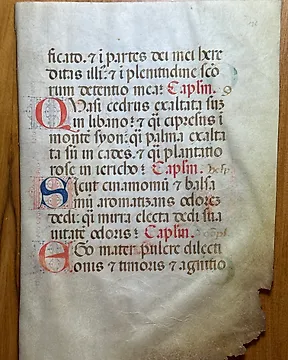 ficato. ⁊ i partes dei mei here
ditas illiꝰ ⁊ i plenitudine scō
rum detentio mea: Caplm.
Quasi cedrus exaltata sū
in libano: ⁊ q̄si cipresus i
monte syon: q̄si palma exalta
ta sū in cades. ⁊ q̄si plantatio
rose in iericho: Caplm.
Sicut cinamomū ⁊ balsa
mū aromatizans odorez
dedi: q̄si mirra electa dedi sua
uitatē odoris: Caplm.
EGo mater pulcre dilecti
onis ⁊ timoris ⁊ agnitio